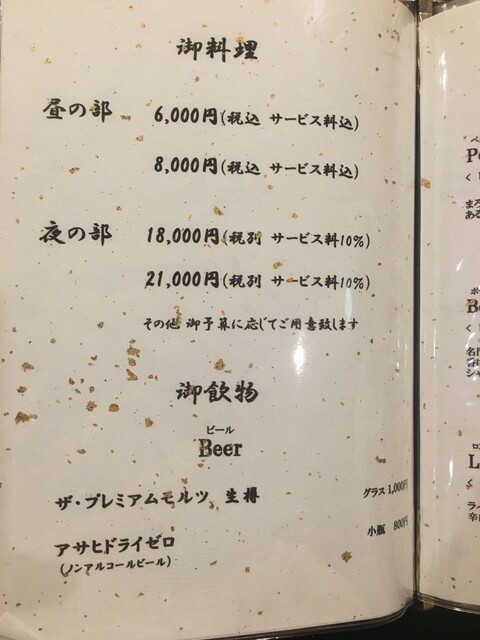 御料理
昼の部 6,000円(税込 サービス料込)
8,000円(税込 サービス料込)
夜の部 18,000円(税別 サービス料10%)
21,000円(税別 サービス料10%)
その他 御予算に応じてご用意致します
御飲物
ビール
Beer
ザ・プレミアムモルツ 生樽 グラス 1,000円
アサヒドライゼロ 小瓶 800円
(ノンアルコールビール)